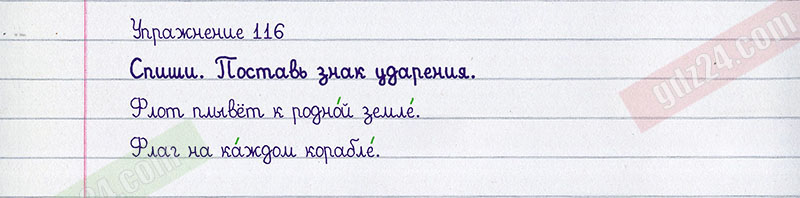 Упражнение 116
Спиши. Поставь знак ударения.
Флот плывёт к родно́й земле́.
Флаг на ка́ждом корабле́.
gdz24.com
24.com